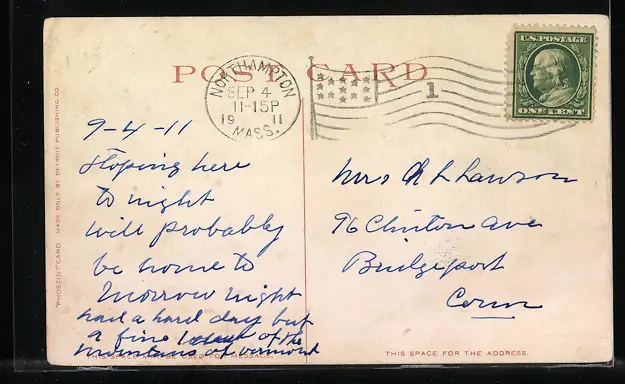 POST CARD
NORTHAMPTON
SEP 4
11-15P
19 11
MASS.
1
U.S. POSTAGE
ONE CENT
"PHOSTINT" CARD. MADE ONLY BY DETROIT PUBLISHING CO.
9-4-11
Stoping here
to night
will probably
be home to
morrow night
had a hard day but
a fine of the
mountains of vermont
Mrs A L Lawson
96 Clinton Ave
Bridgeport
Conn
THIS SPACE MAY BE USED FOR MESSAGE.
THIS SPACE FOR THE ADDRESS.